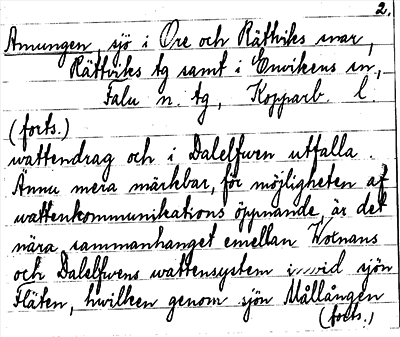 2.
Amungen, sjö i Ore och Rättviks snar,
Rättviks tg samt i Envikens sn,
Falu n. tg, Kopparb. l.
(forts.)
wattendrag och i Dalelfwen utfalla.
Ännu mera märkbar, för möjligheten af
wattenkommunikations öppnande, är det
nära sammanhanget emellan Woxnans
och Dalelfwens wattensystem wid sjön
Fläten, hwilken genom sjön Mållången
(forts.)